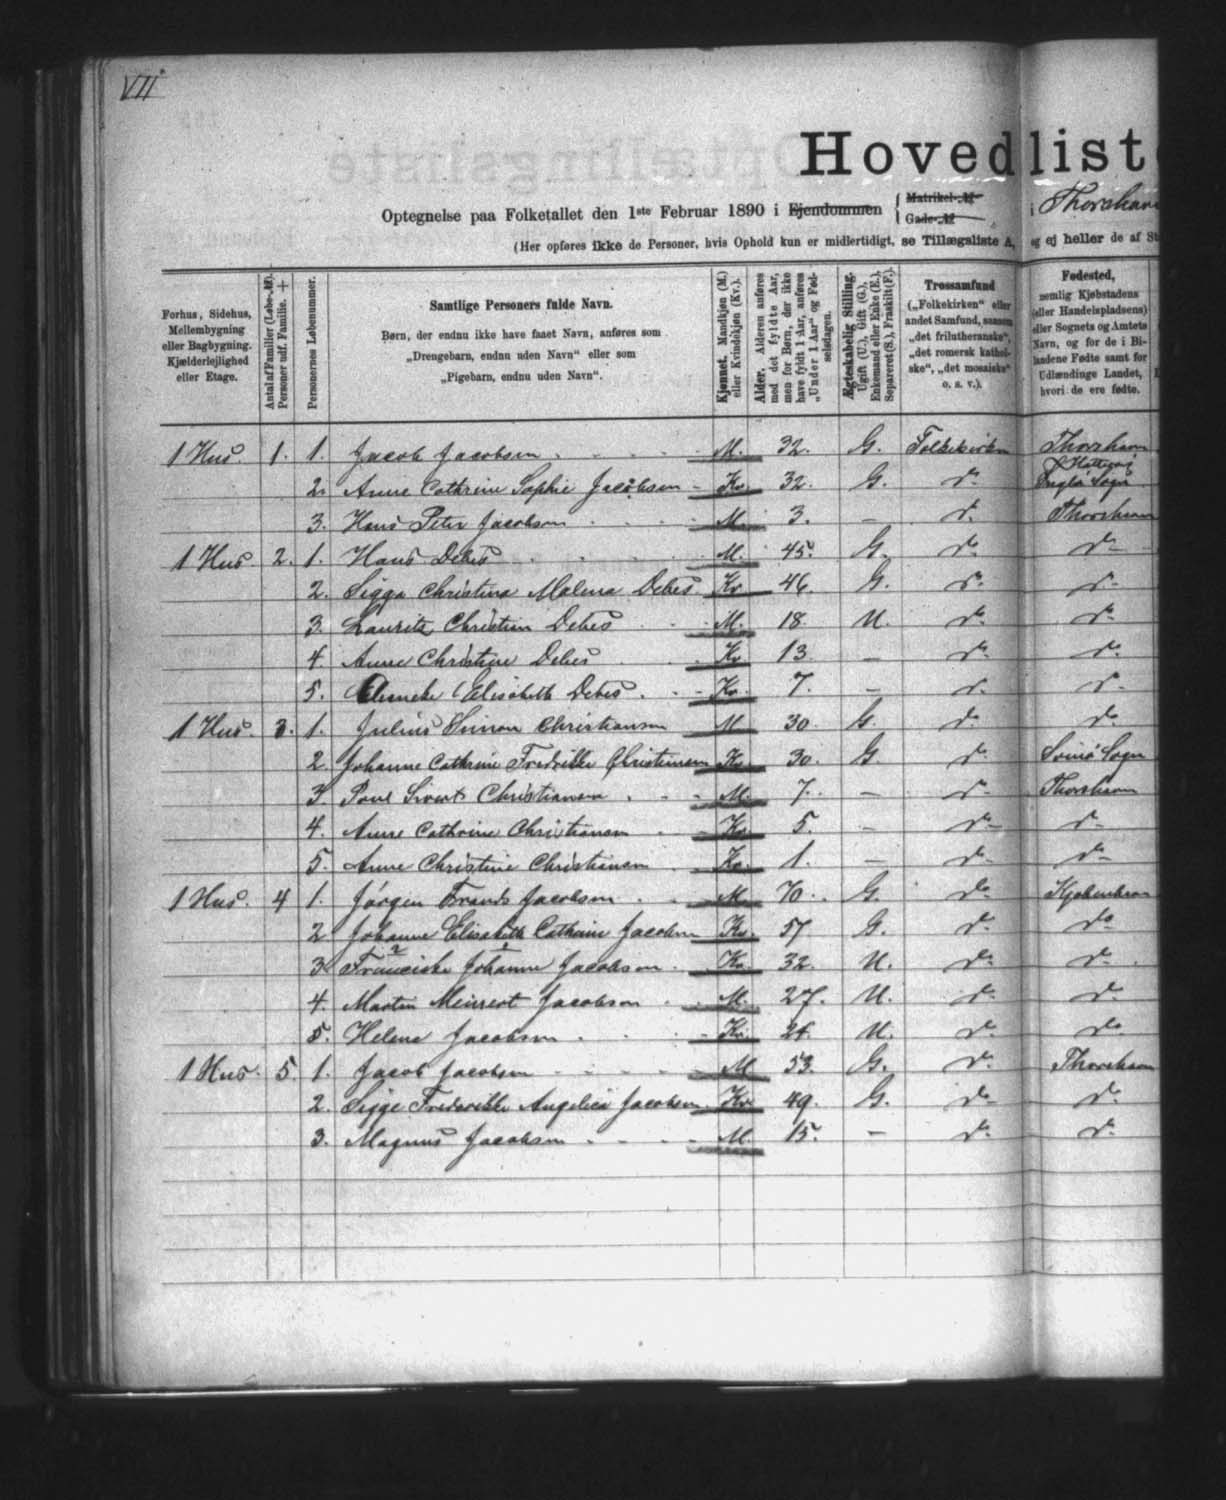 VII
Hovedlist
Optegnelse paa Folketallet den 1ste Februar 1890 i Ejendommen { Matrikel-№ Gade-№ i Thorshavn
(Her opføres ikke de Personer, hvis Ophold kun er midlertidigt, se Tillægsliste A, og ej heller de af St
Forhus, Sidehus, Mellembygning eller Bagbygning. Kjælderlejlighed eller Etage.
Antal af Familier (Løbe-№). Personer udf. Familie. +
Personernes Løbenummer.
Samtlige Personers fulde Navn.
Børn, der endnu ikke have faaet Navn, anføres som
„Drengebarn, endnu uden Navn“ eller som
„Pigebarn, endnu uden Navn“.
Kjønnet. Mandkjøn (M.) eller Kvindekjøn (Kv.).
Alder. Alderen anføres med det fyldte Aar, men for Børn, der ikke have fyldt 1 Aar, anføres „Under 1 Aar“ og Fødselsdagen.
Ægteskabelig Stilling. Ugift (U.), Gift (G.), Enkemand eller Enke (E.), Separeret (S.), Fraskilt (F.).
Trossamfund („Folkekirken“ eller andet Samfund, saasom „det frilutheranske“, „det romersk katholske“, „det mosaiske“ o. s. v.).
Fødested, nemlig Kjøbstadens (eller Handelspladsens) eller Sognets og Amtets Navn, og for de i Bilandene Fødte samt for Udlændinge Landet, hvori de ere fødte.
1 Hus. 1. 1. Jacob Jacobsen M. 32. G. Folkekirken Thorshavn
2. Anne Cathrine Sophie Jacobsen Kv 32. G. do Sogn
3. Hans Peter Jacobsen M. 3. – do Thorshavn
1 Hus. 2. 1. Hans Debes M. 45. G. do do
2. Sigga Christina Malena Debes Kv 46. G. do do
3. Lauritz Christian Debes M. 18. U. do do
4. Anne Christine Debes Kv 13. – do do
5. Elisabeth Debes. Kv. 7. – do do
1 Hus. 3. 1. Julius Simon Christiansen M 30. G. do do
2. Johanne Cathrine Fredrikke Christiansen Kv. 30. G. do Svinø Sogn
3. Poul Sivert Christiansen M. 7. – do Thorshavn
4. Anne Cathrine Christiansen Kv. 5. – do do
5. Anne Christine Christiansen Kv. 1. – do do
1 Hus. 4 1. Jørgen Frants Jacobsen M 70. G. do Kjøbenhavn
2 Johanne Elisabeth Cathrine Jacobsen Kv. 57 G. do do
3. Franciska Johanne Jacobsen Kv. 32. U. do do
4. Martin Meinert Jacobsen M. 27. U. do do
5. Helena Jacobsen Kv. 24. U. do do
1 Hus. 5. 1. Jacob Jacobsen M 53. G. do Thorshavn
2. Sigge Frederikke Angelica Jacobsen Kv. 49. G. do do
3. Magnus Jacobsen M. 15. – do do